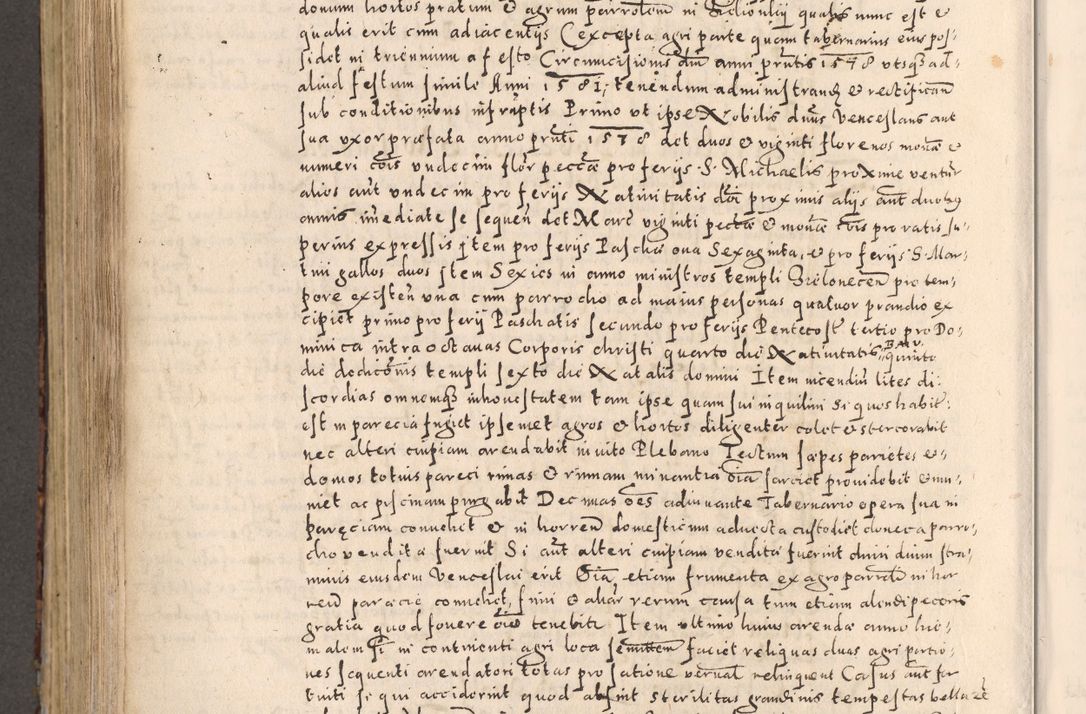 donum hortos pratum & agrum parrolem in Sidlonÿ qualis nunc est &
qualis erit cum adiacentÿs Cexcepta agri parte quam tabernarius eius pos-
sidet in triennium a festo Circumcisionis dni anni pntis 1578 vtsq ad-
aliud festum simile Anni 1581, tenendum administrand & rectificam
sub conditionibus infrptis Primo vt ipse Nobilis dnus Venceslaus aut
sua vxor præfata anno pnti 1578 det duos & viginti florenos mone &
numeri cois vndecim flor peccæ pro ferÿs S. Michaelis proxime ventur
alios aut vndecim pro ferÿs Natiuitatis dni proximis alÿs aut duobus
annis imediate se sequen det Marc viginti pectæ & mone cois pro ratis su-
perius expressis item pro ferÿs Paschæ oua Sexaginta, & pro ferÿs S. Mar-
tini gallos duos item Sexies in anno ministros templi Szélonecen pro tem-
pore existen vna cum parrocho ad maius personas quatuor prandio ex
cipiet primo pro ferÿ Paschatis secundo pro ferÿs Pentecost tertio pro Do-
minica intra octauas Corporis christi quarto die Natiuitatis B.M.V. quinto
die dediconis templi sexto die Natalis domini Item incendiu lites di
scordias omnemq inhonestatem tam ipse quam sui inquilini Si quos habit
est in parecia fugiet ipsemet agros & hortos diligenter colet & stercorabit
nec alteri cuipiam arendabit inuito Plebano Tectum sæpes parietes &
domos totius pareci rimas & ruinam minantia oia sarciet prouidebit & mu-
niet ac piscinam purgabit Decimas oes adiuuante Tabernario opera sua in
paręciam conuehet & in horreu domesticum aducta custodiet donec a parro-
cho vendita fuerint Si aut alteri cuipiam vendita fuerint duni duum stra-
minis eiusdem Venceslai erit Oia, etiam frumenta ex agro parrol in hor
reu paræciæ conuehet, fimi & aliar rerum causa tum etiam alendi pecoris
gratia quod fouere oino tenebit Item vltimo huius arendæ anno hie-
malem in continenti agri loca sementem faciet reliquas duas agri partio-
nes sequenti arendatori totas pro satione vernal relinquent Casus aut for
tuiti si qui acciderint quod absint sterilitas grandinis tempestas bella &